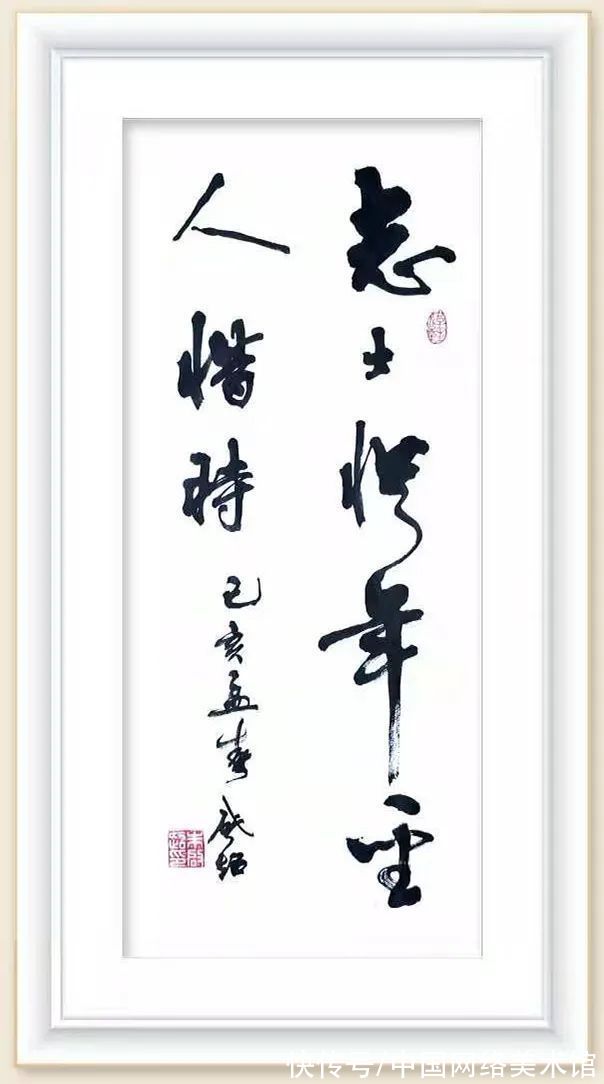 志士惜年聖
人惜時
己亥孟春
快传号/中国网络美术馆